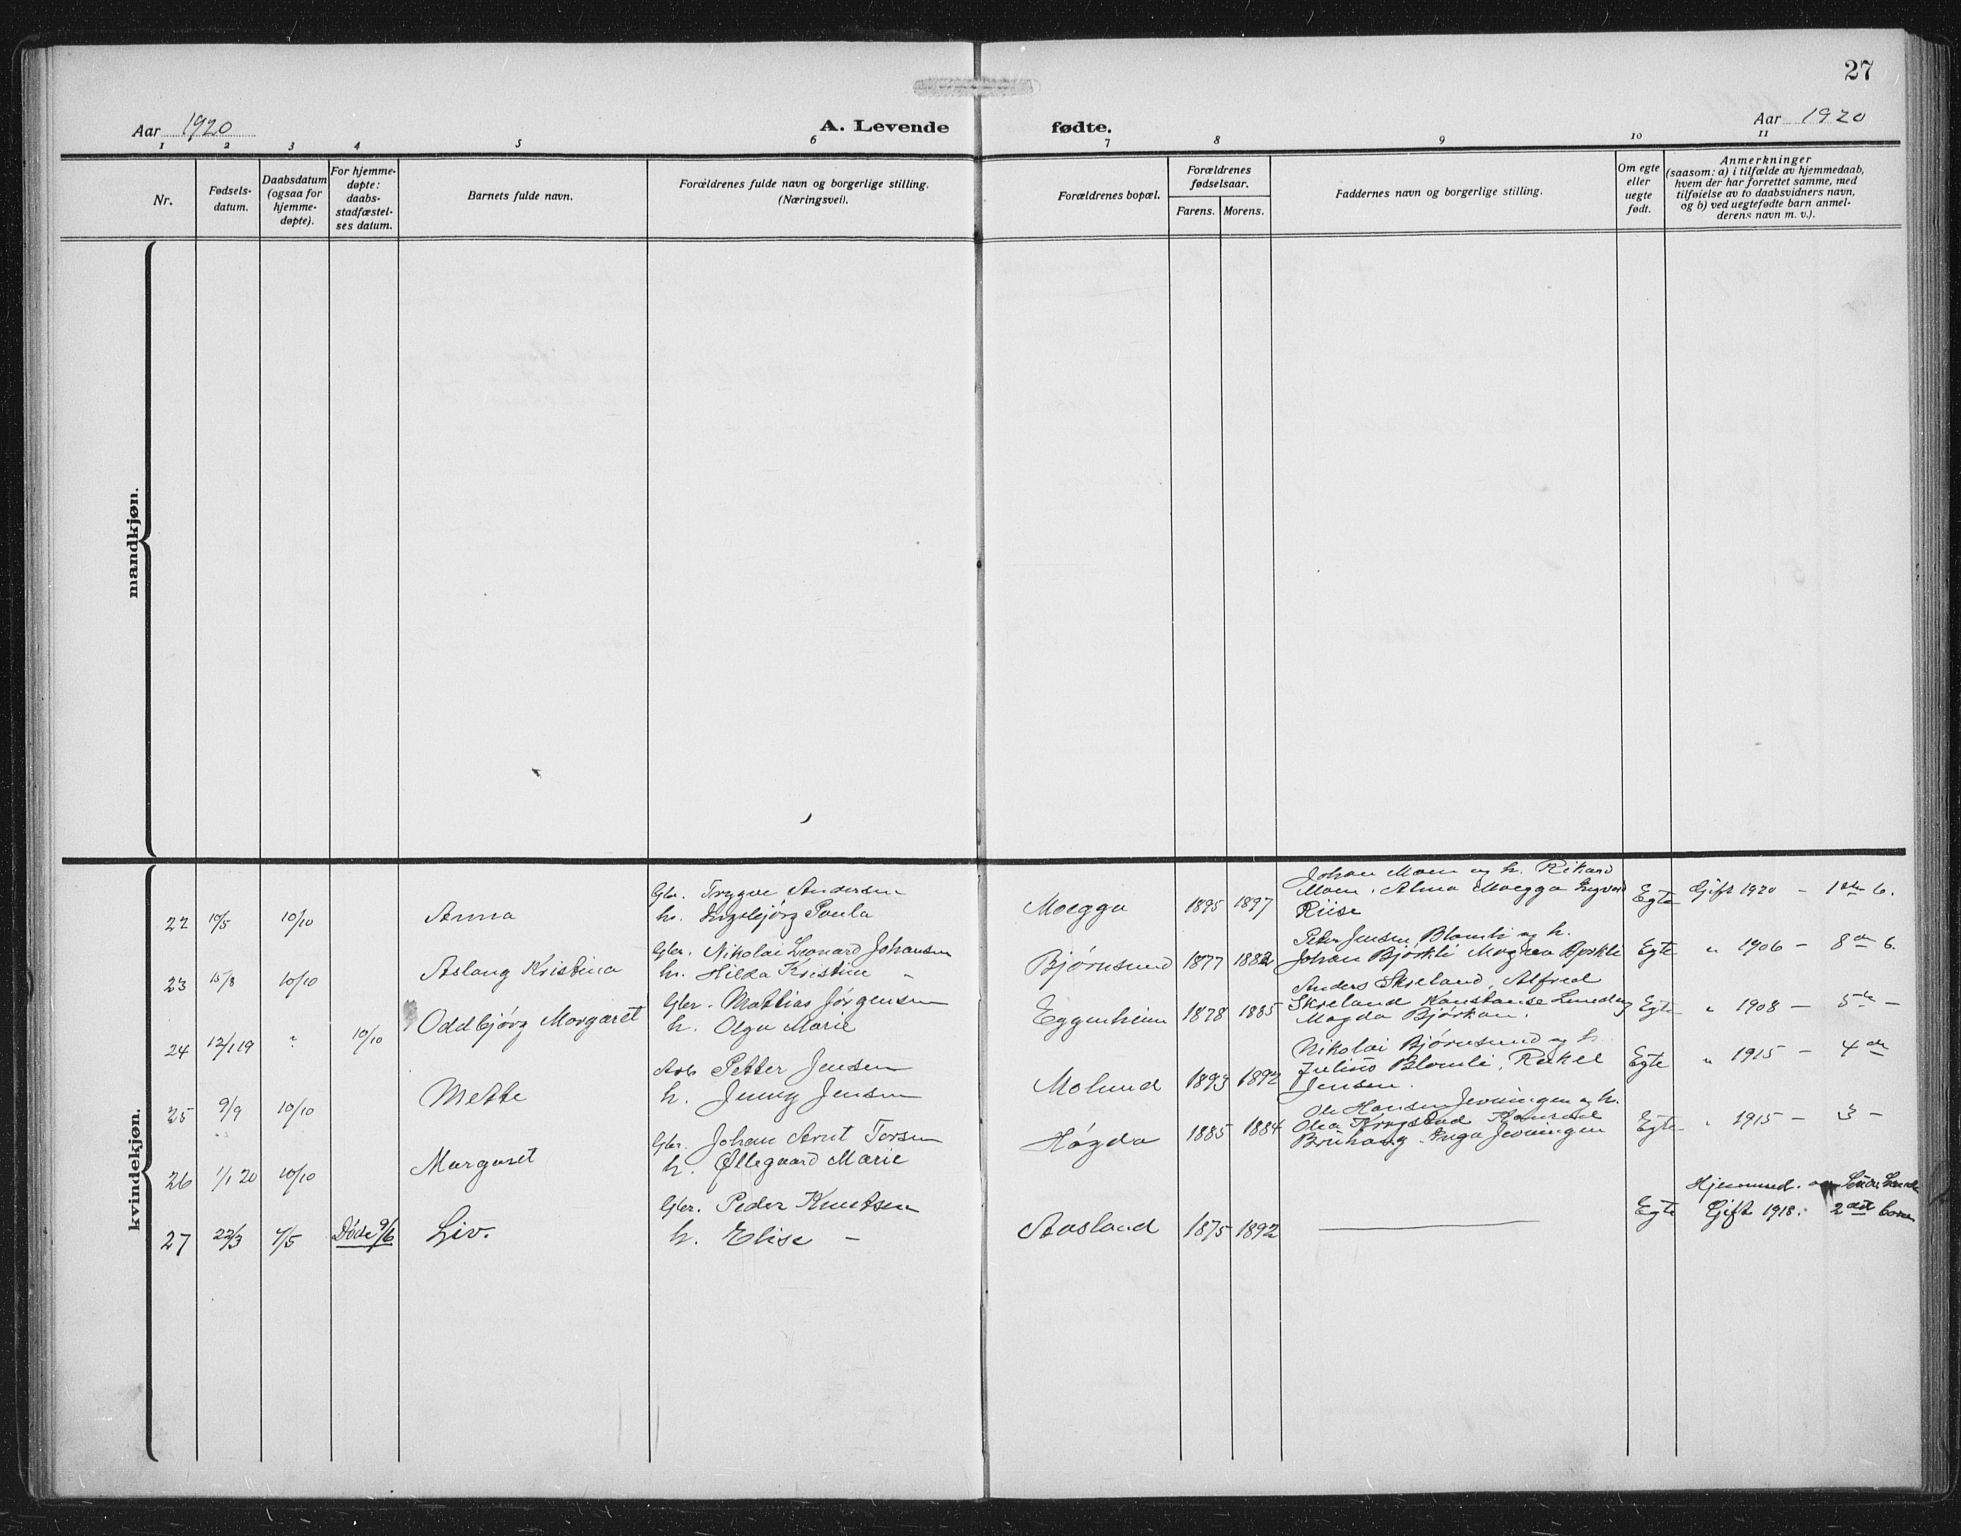 27
Aar 1920
A. Levende fødte.
Aar 1920
1 2 3 4 5 6 7 8 9 10 11
Nr.
Fødsels-
datum.
Daabsdatum
(ogsaa for
hjemme-
døpte).
For hjemme-
døpte:
daabs-
stadfæstel-
ses datum.
Barnets fulde navn.
Forældrenes fulde navn og borgerlige stilling.
(Næringsvei).
Forældrenes bopæl.
Forældrenes
fødselsaar.
Farens. Morens.
Faddernes navn og borgerlige stilling.
Om egte
eller
uegte
født.
Anmerkninger
(saasom: a) i tilfælde av hjemmedaab,
hvem der har forrettet samme, med
tilføielse av to daabsvidners navn,
og b) ved uegtefødte barn anmel-
derens navn m. v.).
mandkjøn.
kvindekjøn.
22 10/5 10/10 Anna
Gbr. Trygve Andersen
h. Ingebjørg Paula
Moegga 1895 1897
Johan Moen og h. Rikard
Moen, Alma Moegga Ingvard
Riise
Egte Gift 1920 – 1ste b.
23 15/8 10/10 Aslaug Kristina
Gbr. Nikolai Leonard Johansen
h. Hilda Kristine –
Bjørnsund 1877 1882
Peter Jensen Blomli og h.
Johan Bjørkli Magna Bjørkli
Egte " 1906 – 8de b.
24 12/1 19 ? 10/10 Oddbjørg Margaret
Gbr. Mattias Jørgensen
h. Olga Marie
Eggenheim 1878 1885
Anders Skreland, Alfred
Skreland Konstanse
Magda Bjørkan.
Egte " 1908 – 5te –
25 9/9 10/10 Mette
Arb. Petter Jensen
h. Jenny Jensen
Molund 1893 1892
Nikolai Bjørnsund og h.
Julius Blomli, Rakel
Jensen.
Egte " 1915 – 4de
26 1/1 20 10/10 Margaret
Gbr. Johan Arnt Torsen
h. Øllegaard Marie
Høgda 1885 1884
Ole Hansen Jevningen og h.
Olea Krogstad
Bruhaug Inga Jevningen
Egte " 1915 – 3 –
27 22/3 4/5 Døde 9/6 Liv.
Gbr. Peder Knutsen
h. Elise –
Aasland 1875 1892
Egte
Gift 1918. 2det barn